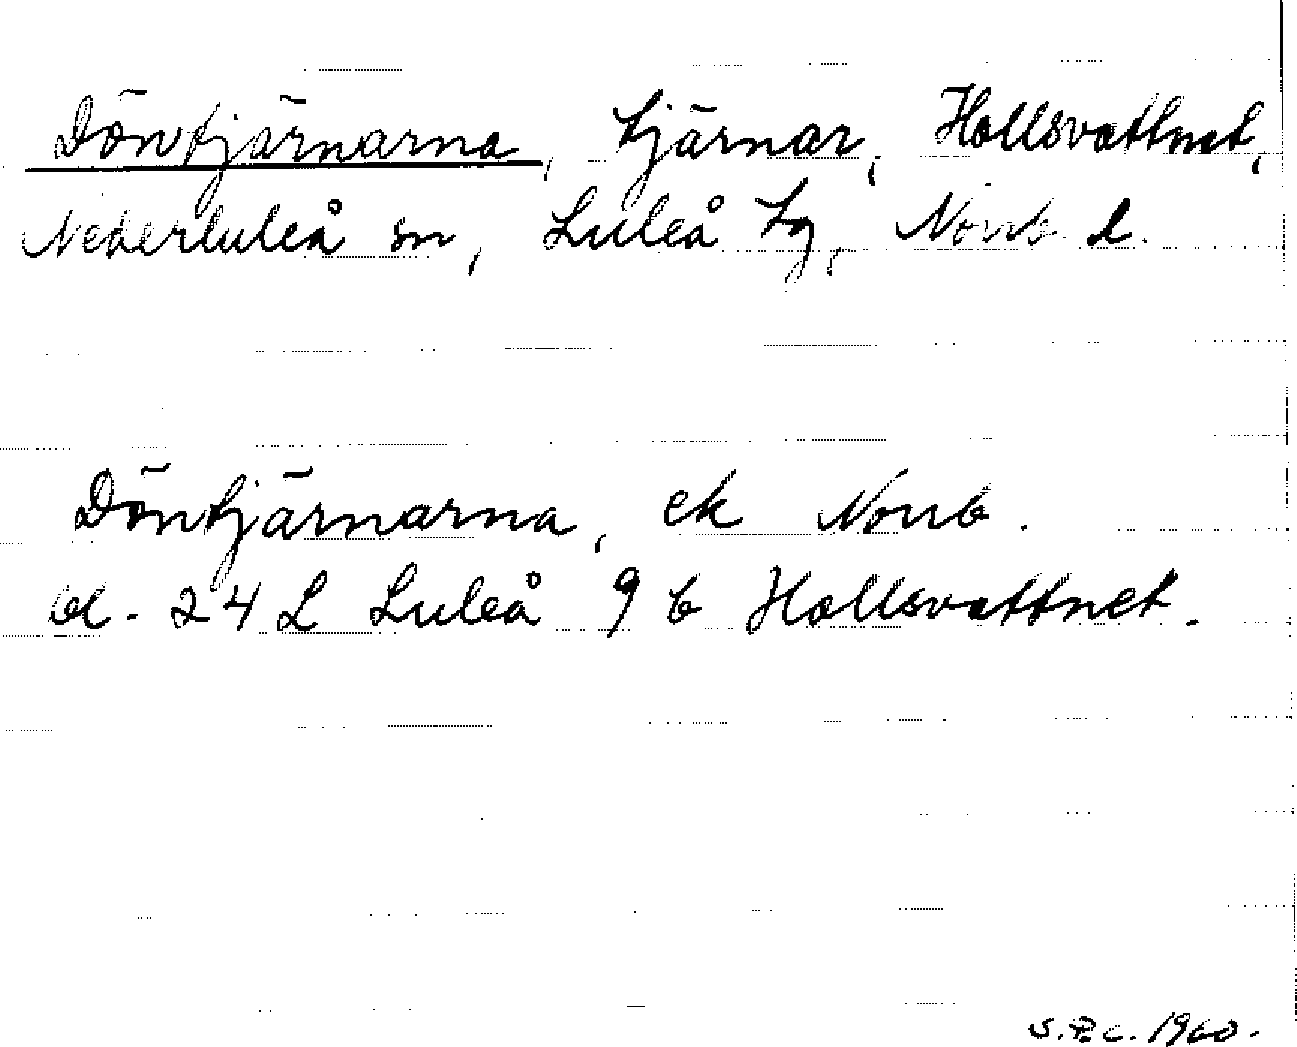 Döntjärnarna, tjärnar, Hallsvattnet,
Nederluleå sn, Luleå tg, Norrb l.
Döntjärnarna, ek Norrb.
bl. 24 L Luleå 9 b Hallsvattnet.
S.P.C. 1960.